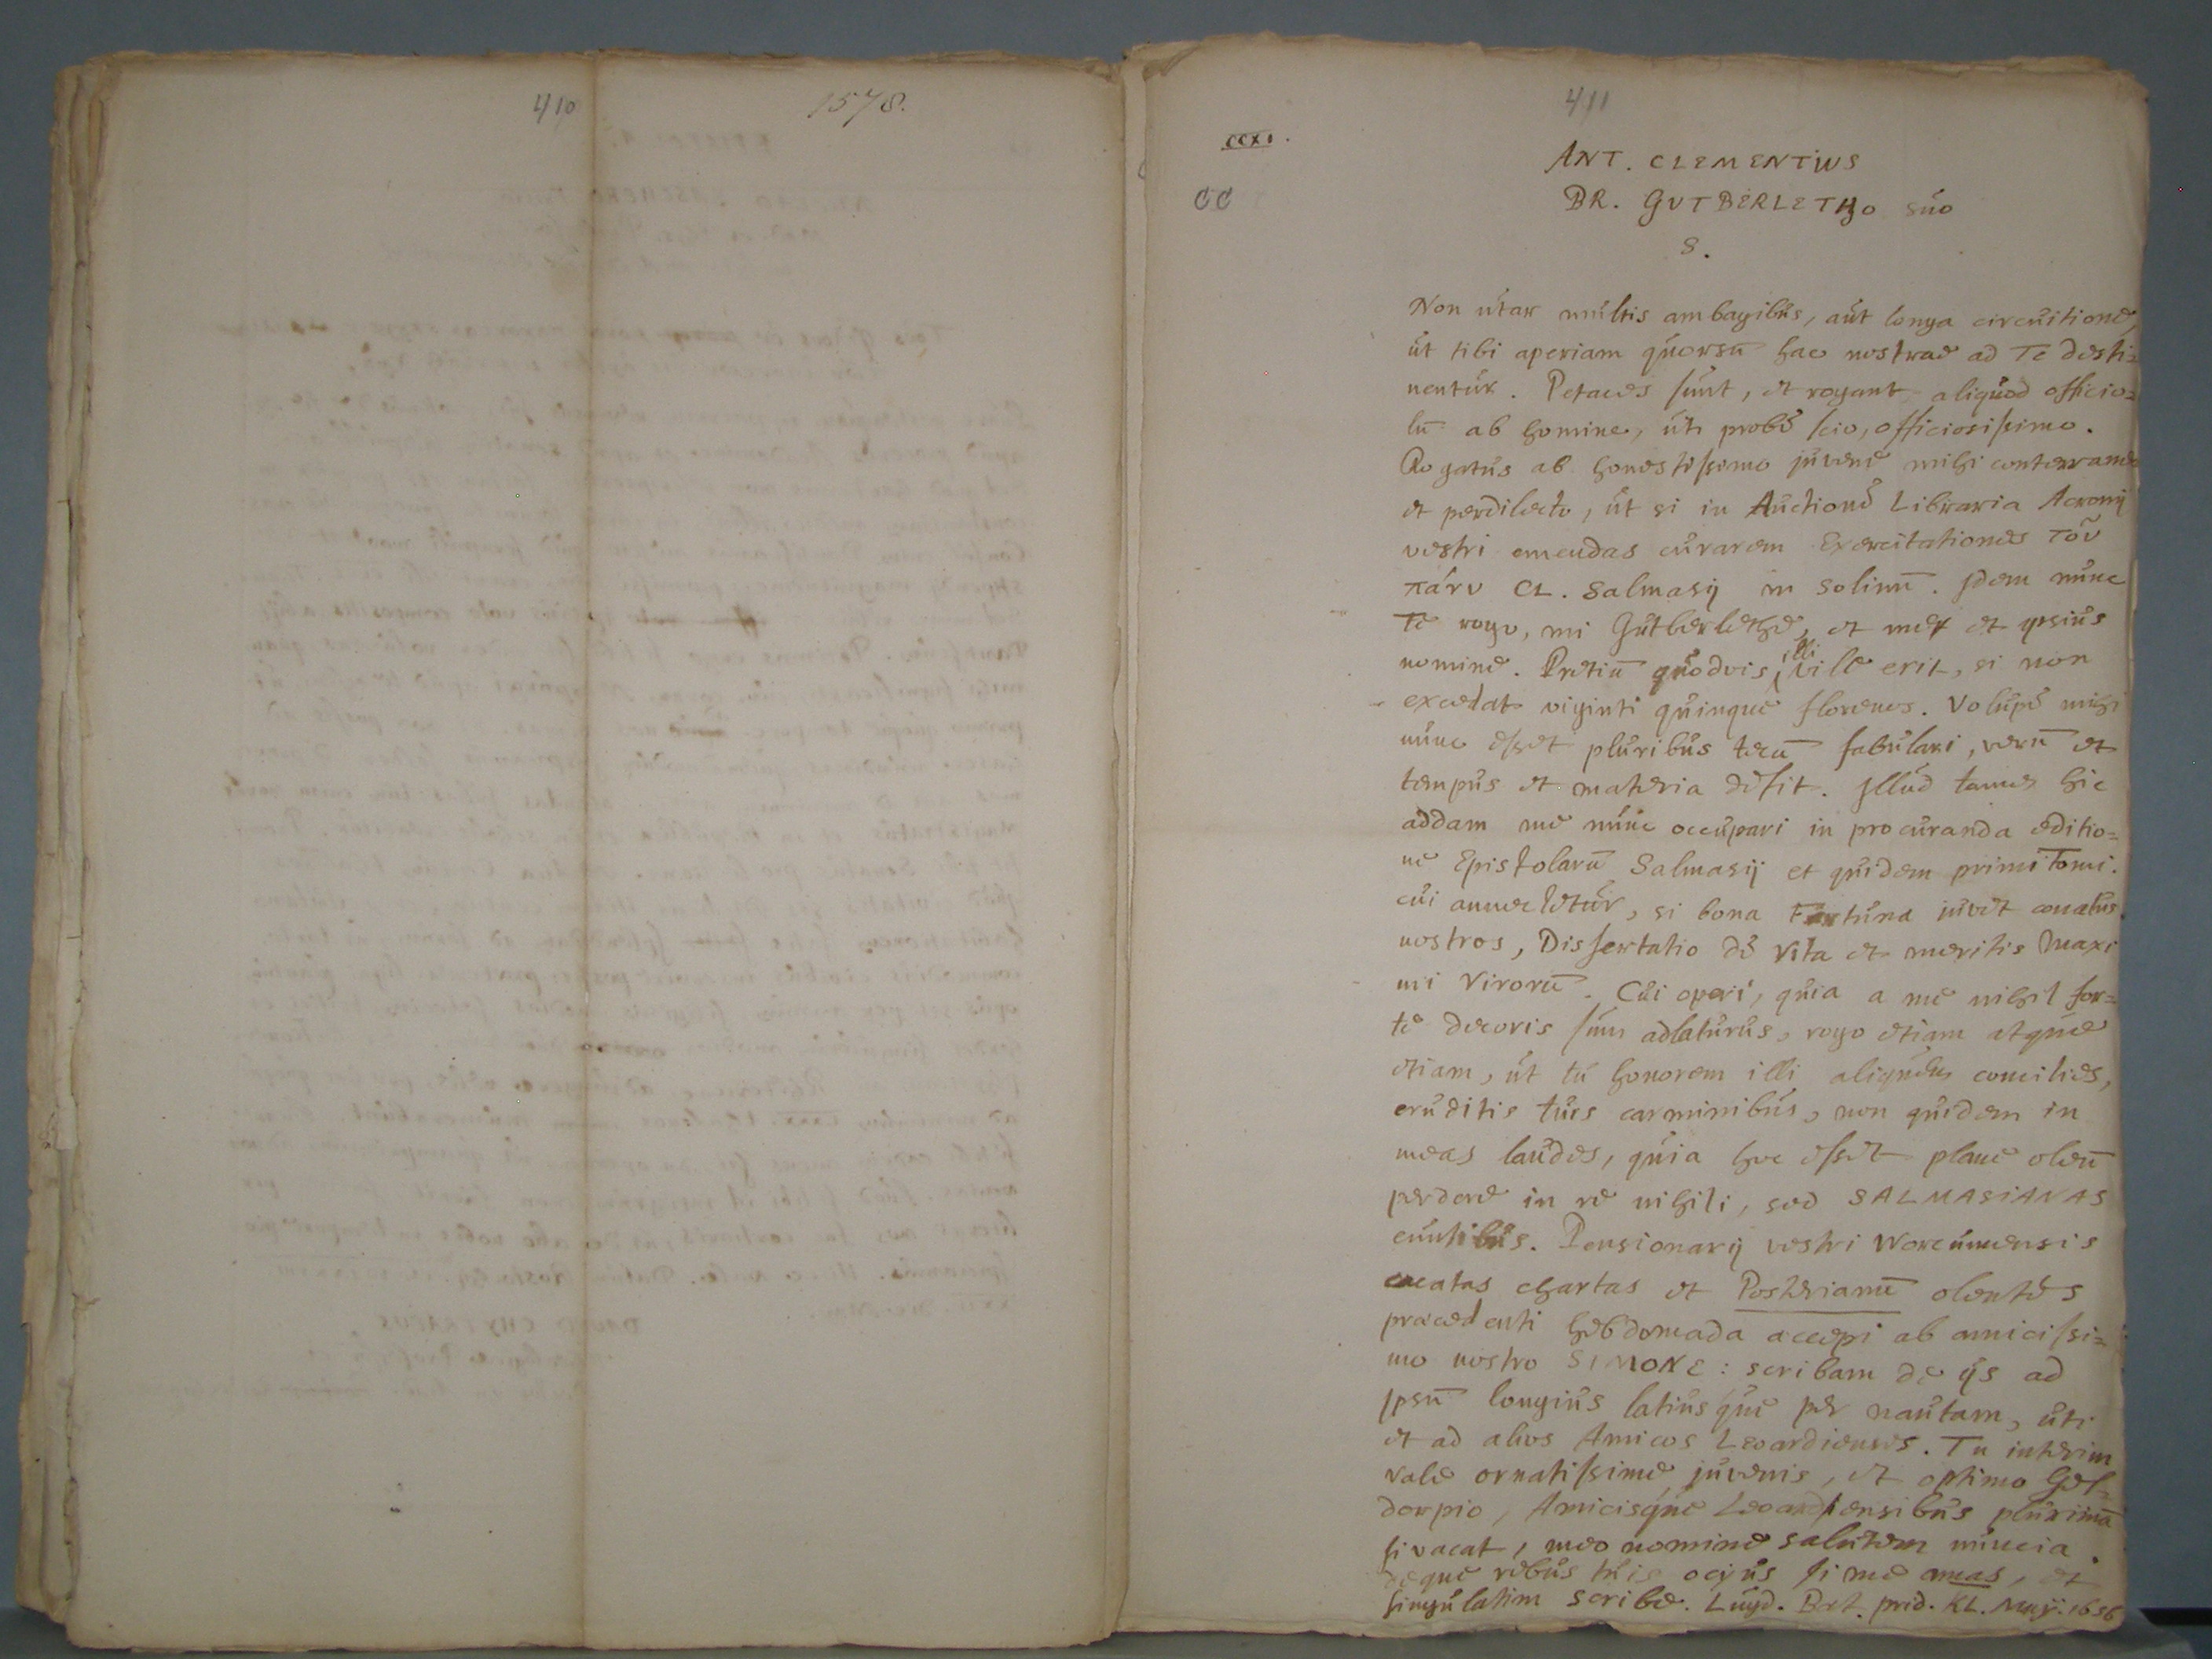 410
1578.
411
ccxi.
CC
ANT. CLEMENTIUS
BR. GUTBERLETHO súo
S.
Non útar múltis ambagibús, aút longa circúitione,
út tibi aperiam qúorsū hae nostrae ad Te desti=
nentúr. Petaces súnt, et rogant aliqúod officio=
lū ab homine, úti probe scio, officiosissimo.
Rogatús ab honestissimo júvene mihi conterraneo
et perdilecto, út si in Aúctione Libraria Acronij
vestri emendas cúrarem Exercitationes Τοῦ
πάνυ CL. Salmasij in Solinū. Idem núnc
Te rogo, mi Gútberlethe, et meo et ipsiús
nomine. Pretiū qúodvis illi vile erit, si non
excedat viginti qúinqúe florenos. Volúpe mihi
núnc esset plúribús tecū fabúlari, verū et
tempús et materia desit. Illúd tamen hic
addam me núnc occúpari in procúranda editio=
ne Epistolarū Salmasij et qúidem primi Tomi.
cúi annectetúr, si bona Fortúna júvet conatús
nostros, Dissertatio de Vita et meritis Maxi
mi Virorū. Cúi operi, qúia a me nihil for=
te decoris súm adlatúrús, rogo etiam atqúe
etiam, út tú honorem illi aliqúem concilies,
erúditis túis carminibús, non qúidem in
meas laúdes, qúia hoc esset plane oleū
perdere in re nihili, sed SALMASIANAS
eúntibús. Pensionarij vestri Worcúmensis
cacatas chartas et Posterianū olentes
praecedenti hebdomada accepi ab amicissi=
mo nostro SIMONE: scribam de ijs ad
Ipsū longiús latiúsqúe per naútam, úti
et ad alios Amicos Leoardienses. Tu interim
vale ornatissime júvenis, et optimo Gel=
dorpio, Amicisqúe Leoardiensibús plúrimā
si vacat, meo nomine salútem núncia.
deqúe rebús túis ocijús si me amas, et
singúlatim scribe. Lúgd. Bat. prid. KL. Maij. 1656